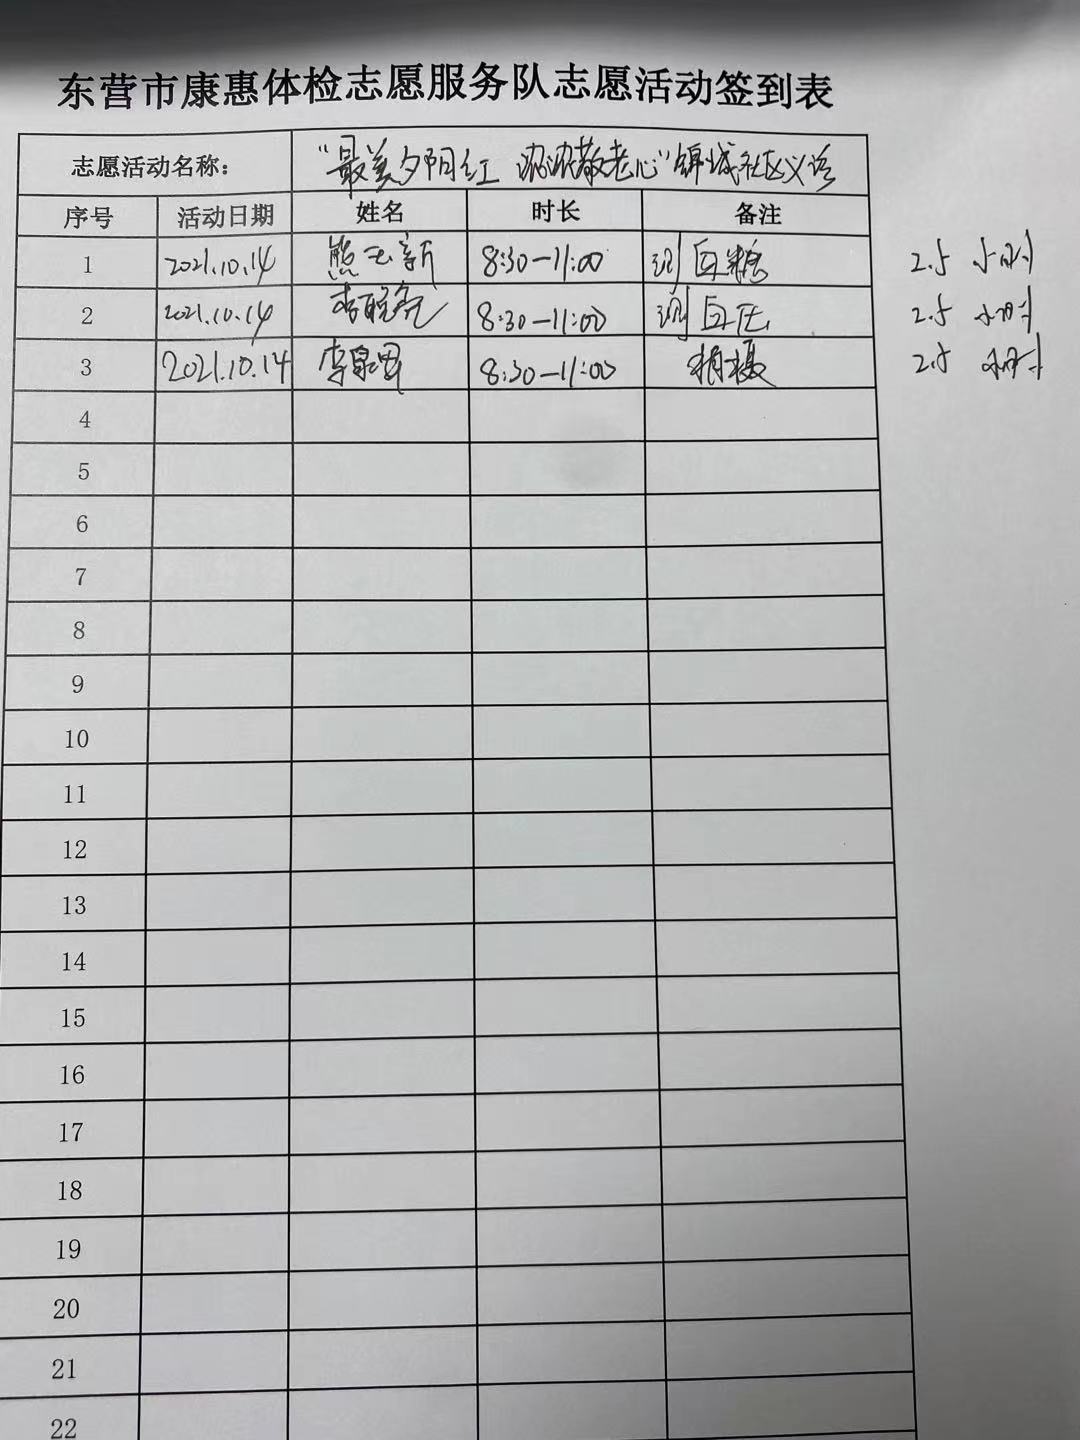 东营市康惠体检志愿服务队志愿活动签到表
志愿活动名称： “最美夕阳红 浓浓敬老心”锦城社区义诊
序号 活动日期 姓名 时长 备注
1 2021.10.14 熊玉新 8:30—11:00 测血糖 2.5 小时
2 2021.10.14 8:30—11:00 测血压 2.5 小时
3 2021.10.14 李泉男 8:30—11:00 拍摄 2.5 小时
4
5
6
7
8
9
10
11
12
13
14
15
16
17
18
19
20
21
22